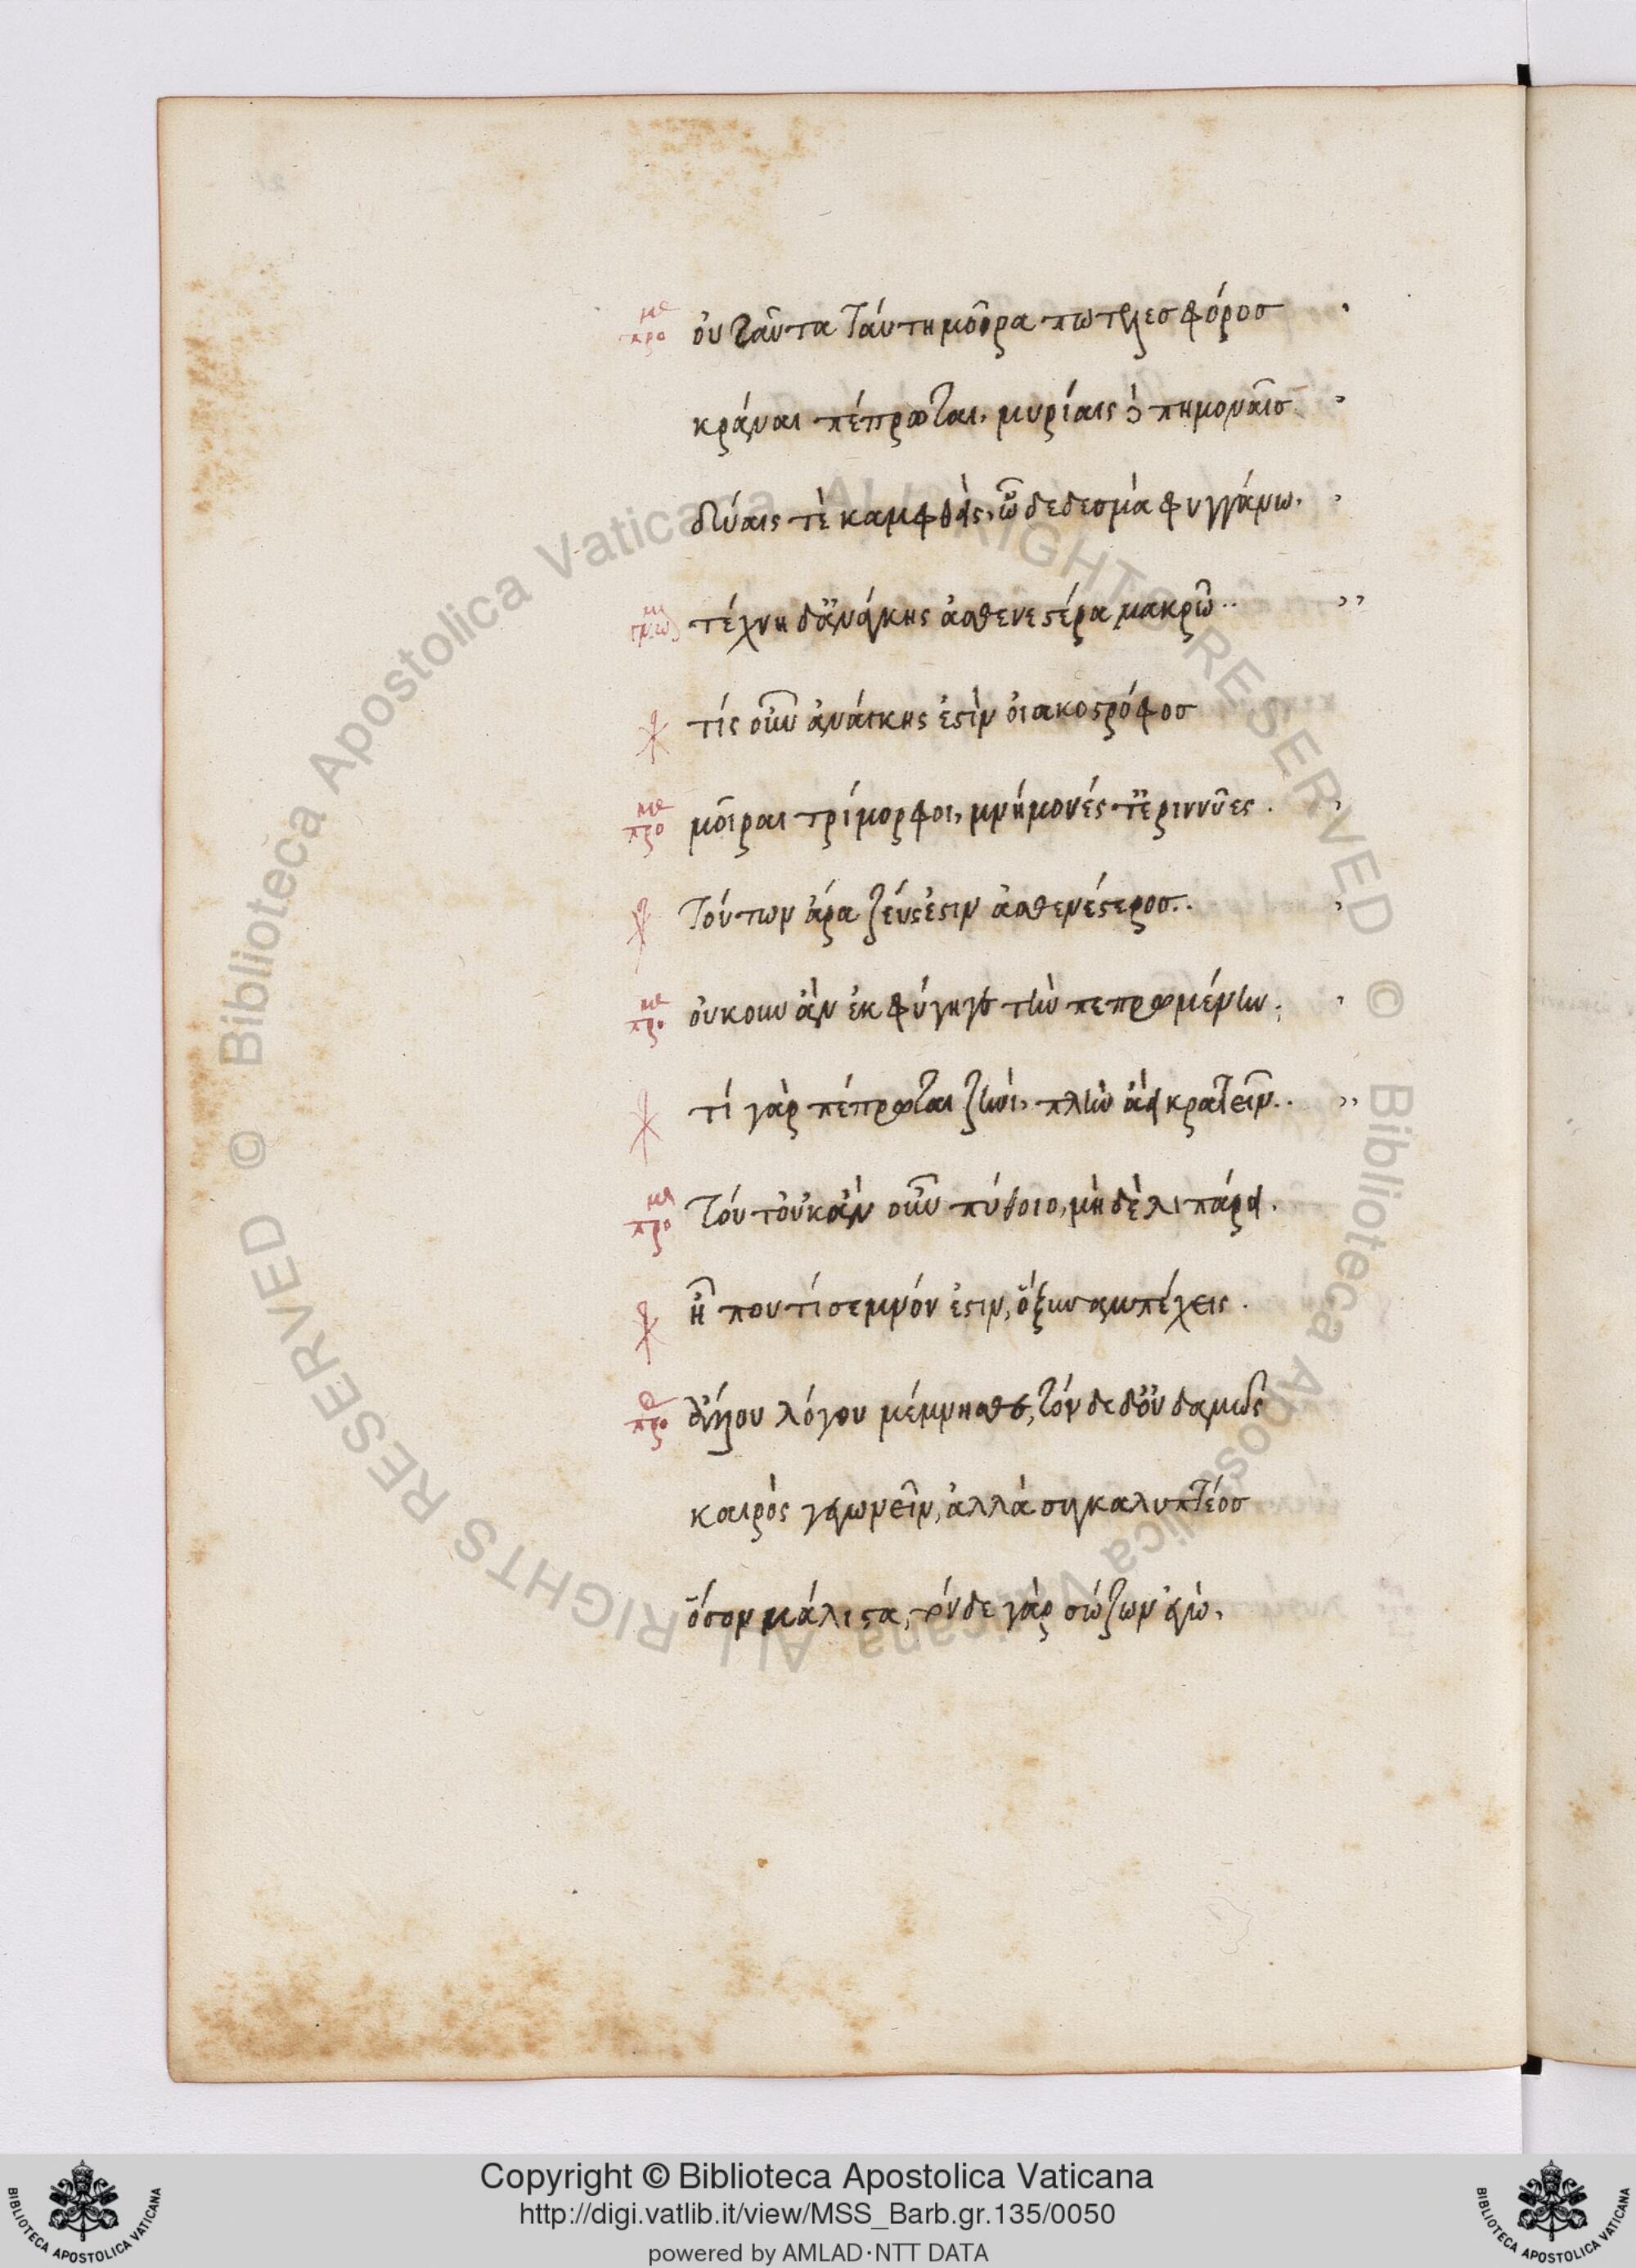 προμε οὐ ταῦτα ταύτη μοῖρα πω τελεσφόρος
κράναι πέπρωται, μυρίαις δὲ πημοναῖς
δύαις τὲ καμφθεὶς, ὧδε δεσμὰ φυγγάνω.
τέχνη δ' ἀνάγκης ἀσθενεστέρα μακρῶ..
τίς οὖν ἀνάγκης ἐστὶν οἰακοστρόφος
προμε μοῖραι τρίμορφοι, μνήμονές τ' ἐριννῦες.
τούτων ἄρα ζεύς ἐστιν ἀσθενέστερος..
προμε οὔκουν ἂν ἐκφύγῃ γε τὴν πεπρωμένην.
τί γὰρ πέπρωται ζηνὶ, πλὴν ἀεὶ κρατεῖν..
προμη τοῦτ' οὐκ ἂν οὖν πύθοιο, μὴ δὲ λιπάρει.
ἦ που τί σεμνόν ἐστιν, ὃ ξυναμπέχεις.
προ ἄλλου λόγου μέμνησθε, τόνδε δ' οὐδαμῶς
καιρὸς γεγωνεῖν, ἀλλὰ συγκαλυπτέος
ὅσον μάλιστα, τόνδε γὰρ σώζων ἐγὼ,
© Biblioteca Apostolica Vaticana ALL RIGHTS RESERVED © Biblioteca Apostolica Vaticana ALL RIGHTS RESERVED
Copyright © Biblioteca Apostolica Vaticana
http://digi.vatlib.it/view/MSS_Barb.gr.135/0050
powered by AMLAD·NTT DATA
BIBLIOTECA APOSTOLICA VATICANA
BIBLIOTECA APOSTOLICA VATICANA